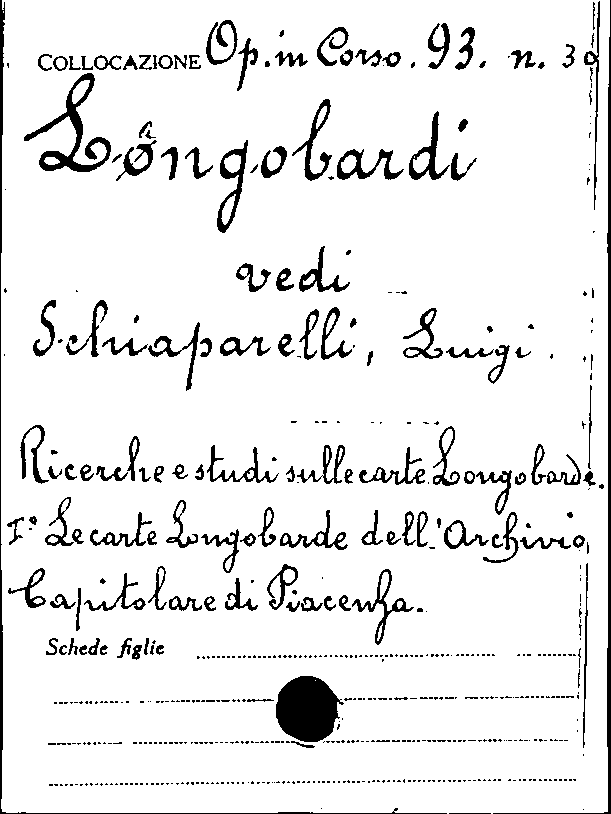 COLLOCAZIONE Op. in Corso. 93. n. 30
Longobardi
vedi
Schiaparelli, Luigi.
Ricerche e studi sulle carte Longobarde.
I° Le carte Longobarde dell'Archivio
Capitolare di Piacenza.
Schede figlie